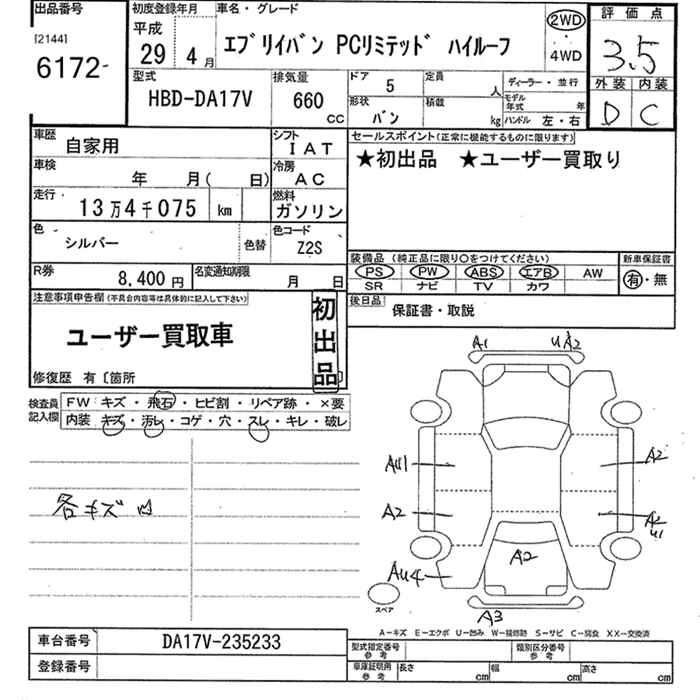 出品番号
[2144]
6172-
初度登録年月
平成
29 4月
車名・グレード
エブリイバン PCリミテッド ハイルーフ
2WD
4WD
評価点
3.5
外装 内装
D C
型式
HBD-DA17V
排気量
660
CC
ドア
5
定員
人
形状
バン
積載
kg
ディーラー・並行
モデル年式 年
ハンドル 左・右
車歴
自家用
シフト
IAT
車検
年 月( 日)
冷房
AC
走行
13万4千075 km
燃料
ガソリン
色
シルバー
色替
色コード
Z2S
R券
8,400円
名変通知期限
月 日
セールスポイント(正常に機能するものに限ります)
★初出品 ★ユーザー買取り
装備品 (純正品に限り○をつけてください)
PS PW ABS エアB AW
SR ナビ TV カワ
新車保証書
有・無
後日品
保証書・取説
注意事項申告欄(不具合内容等は具体的に記入して下さい)
ユーザー買取車
初出品
修復歴 有〔箇所
検査員記入欄
FW キズ・飛石・ヒビ割・リペア跡・×要
内装 キズ・汚レ・コゲ・穴・スレ・キレ・破レ
各キズ凹
A1 UA2
AU1 A2
A2 A2 U1
A2
AU4
スペア
A3
A−キズ E−エクボ U−凹み W−補修跡 S−サビ C−腐食 XX−交換済
車台番号
DA17V-235233
登録番号
型式指定番号
参考
類別区分番号
参考
車庫証明用
参考
長さ cm 幅 cm 高さ cm